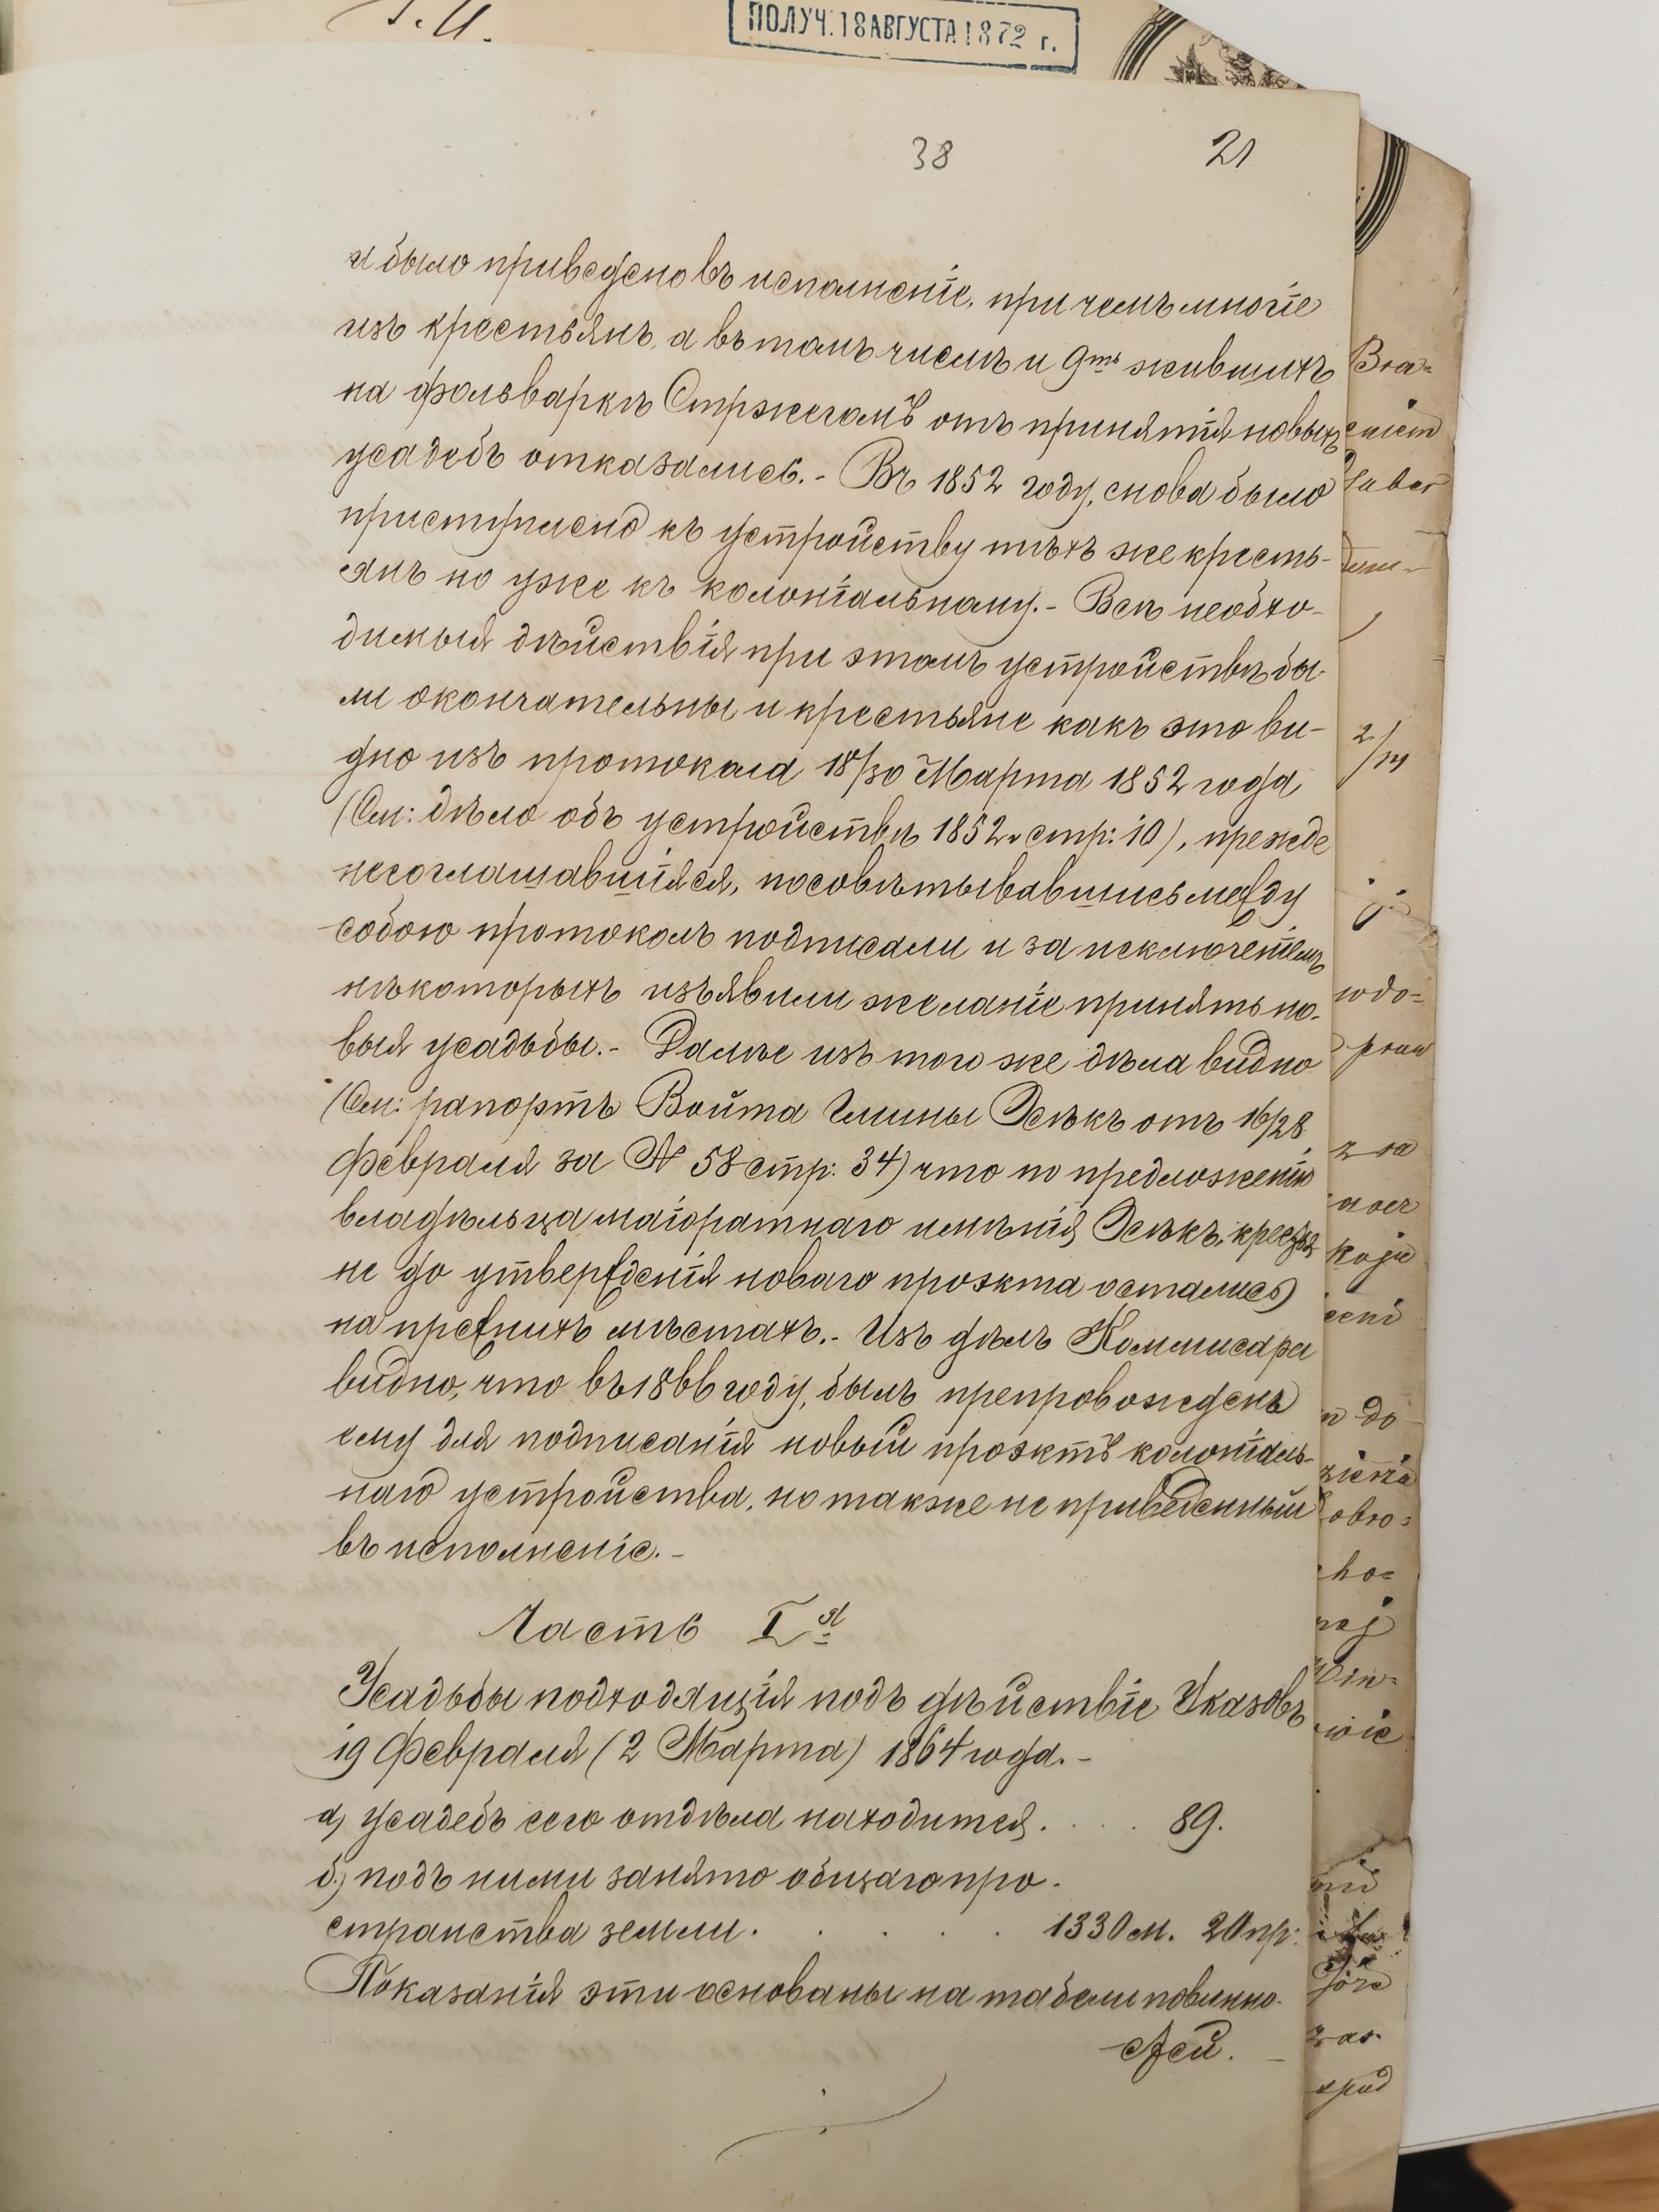 ПОЛУЧ. 18 АВГУСТА 1872 г.
38 21
и было приведено въ исполненіе, при чемъ многіе
изъ крестьянъ, а въ томъ числѣ и 9ть жившихъ
на фольваркѣ Стржегомъ отъ принятія новыхъ
усадебъ отказались. - Въ 1852 году, снова было
приступлено къ устройству тѣхъ же кресть-
янъ но уже къ колоніальному. - Всѣ необхо-
димыя дѣйствія при этомъ устройствѣ бы-
ли окончательны и крестьяне какъ это ви-
дно изъ протокола 18/30 Марта 1852 года
(См: дѣло объ устройствѣ 1852 г. стр: 10), прежде
несоглашавшіяся, посовѣтывавшись между
собою протоколъ подписали и за исключеніемъ
нѣкоторыхъ изъявили желаніе принять но-
выя усадьбы. - Далѣе изъ того же дѣла видно
(См: рапортъ Войта Гмины Осѣкъ отъ 16/28
Февраля за № 58 стр: 34) что по предложенію
владѣльца маіоратнаго имѣнія Осѣкъ, крестья
не до утвержденія новаго проэкта остались
на прежнихъ мѣстахъ. - Изъ дѣлъ Коммисара
видно, что въ 1866 году, былъ препровожденъ
ему для подписанія новый проэктъ колоніаль-
наго устройства, но также не приведенный
въ исполненіе. -
Часть I я
Усадьбы подходящія подъ дѣйствіе Указовъ
19 Февраля (2 Марта) 1864 года. -
а) усадебъ сего отдѣла находится . . . . 89.
б) подъ ними занято общаго про-
странства земли . . . . . 1330 м. 20 пр:
Показанія эти основаны на табели повинно-
стей. -